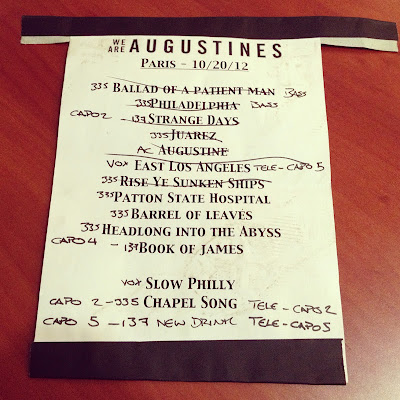 WE ARE AUGUSTINES
PARIS - 10/20/12
335 BALLAD OF A PATIENT MAN BASS
335 PHILADELPHIA BASS
CAPO 2 - 137 STRANGE DAYS
335 JUAREZ
AC AUGUSTINE
VOX EAST LOS ANGELES TELE - CAPO 5
335 RISE YE SUNKEN SHIPS
335 PATTON STATE HOSPITAL
335 BARREL OF LEAVES
335 HEADLONG INTO THE ABYSS
CAPO 4 - 137 BOOK OF JAMES
VOX SLOW PHILLY
CAPO 2 - 335 CHAPEL SONG TELE - CAPO 2
CAPO 5 - 137 NEW DRINK TELE - CAPO 5